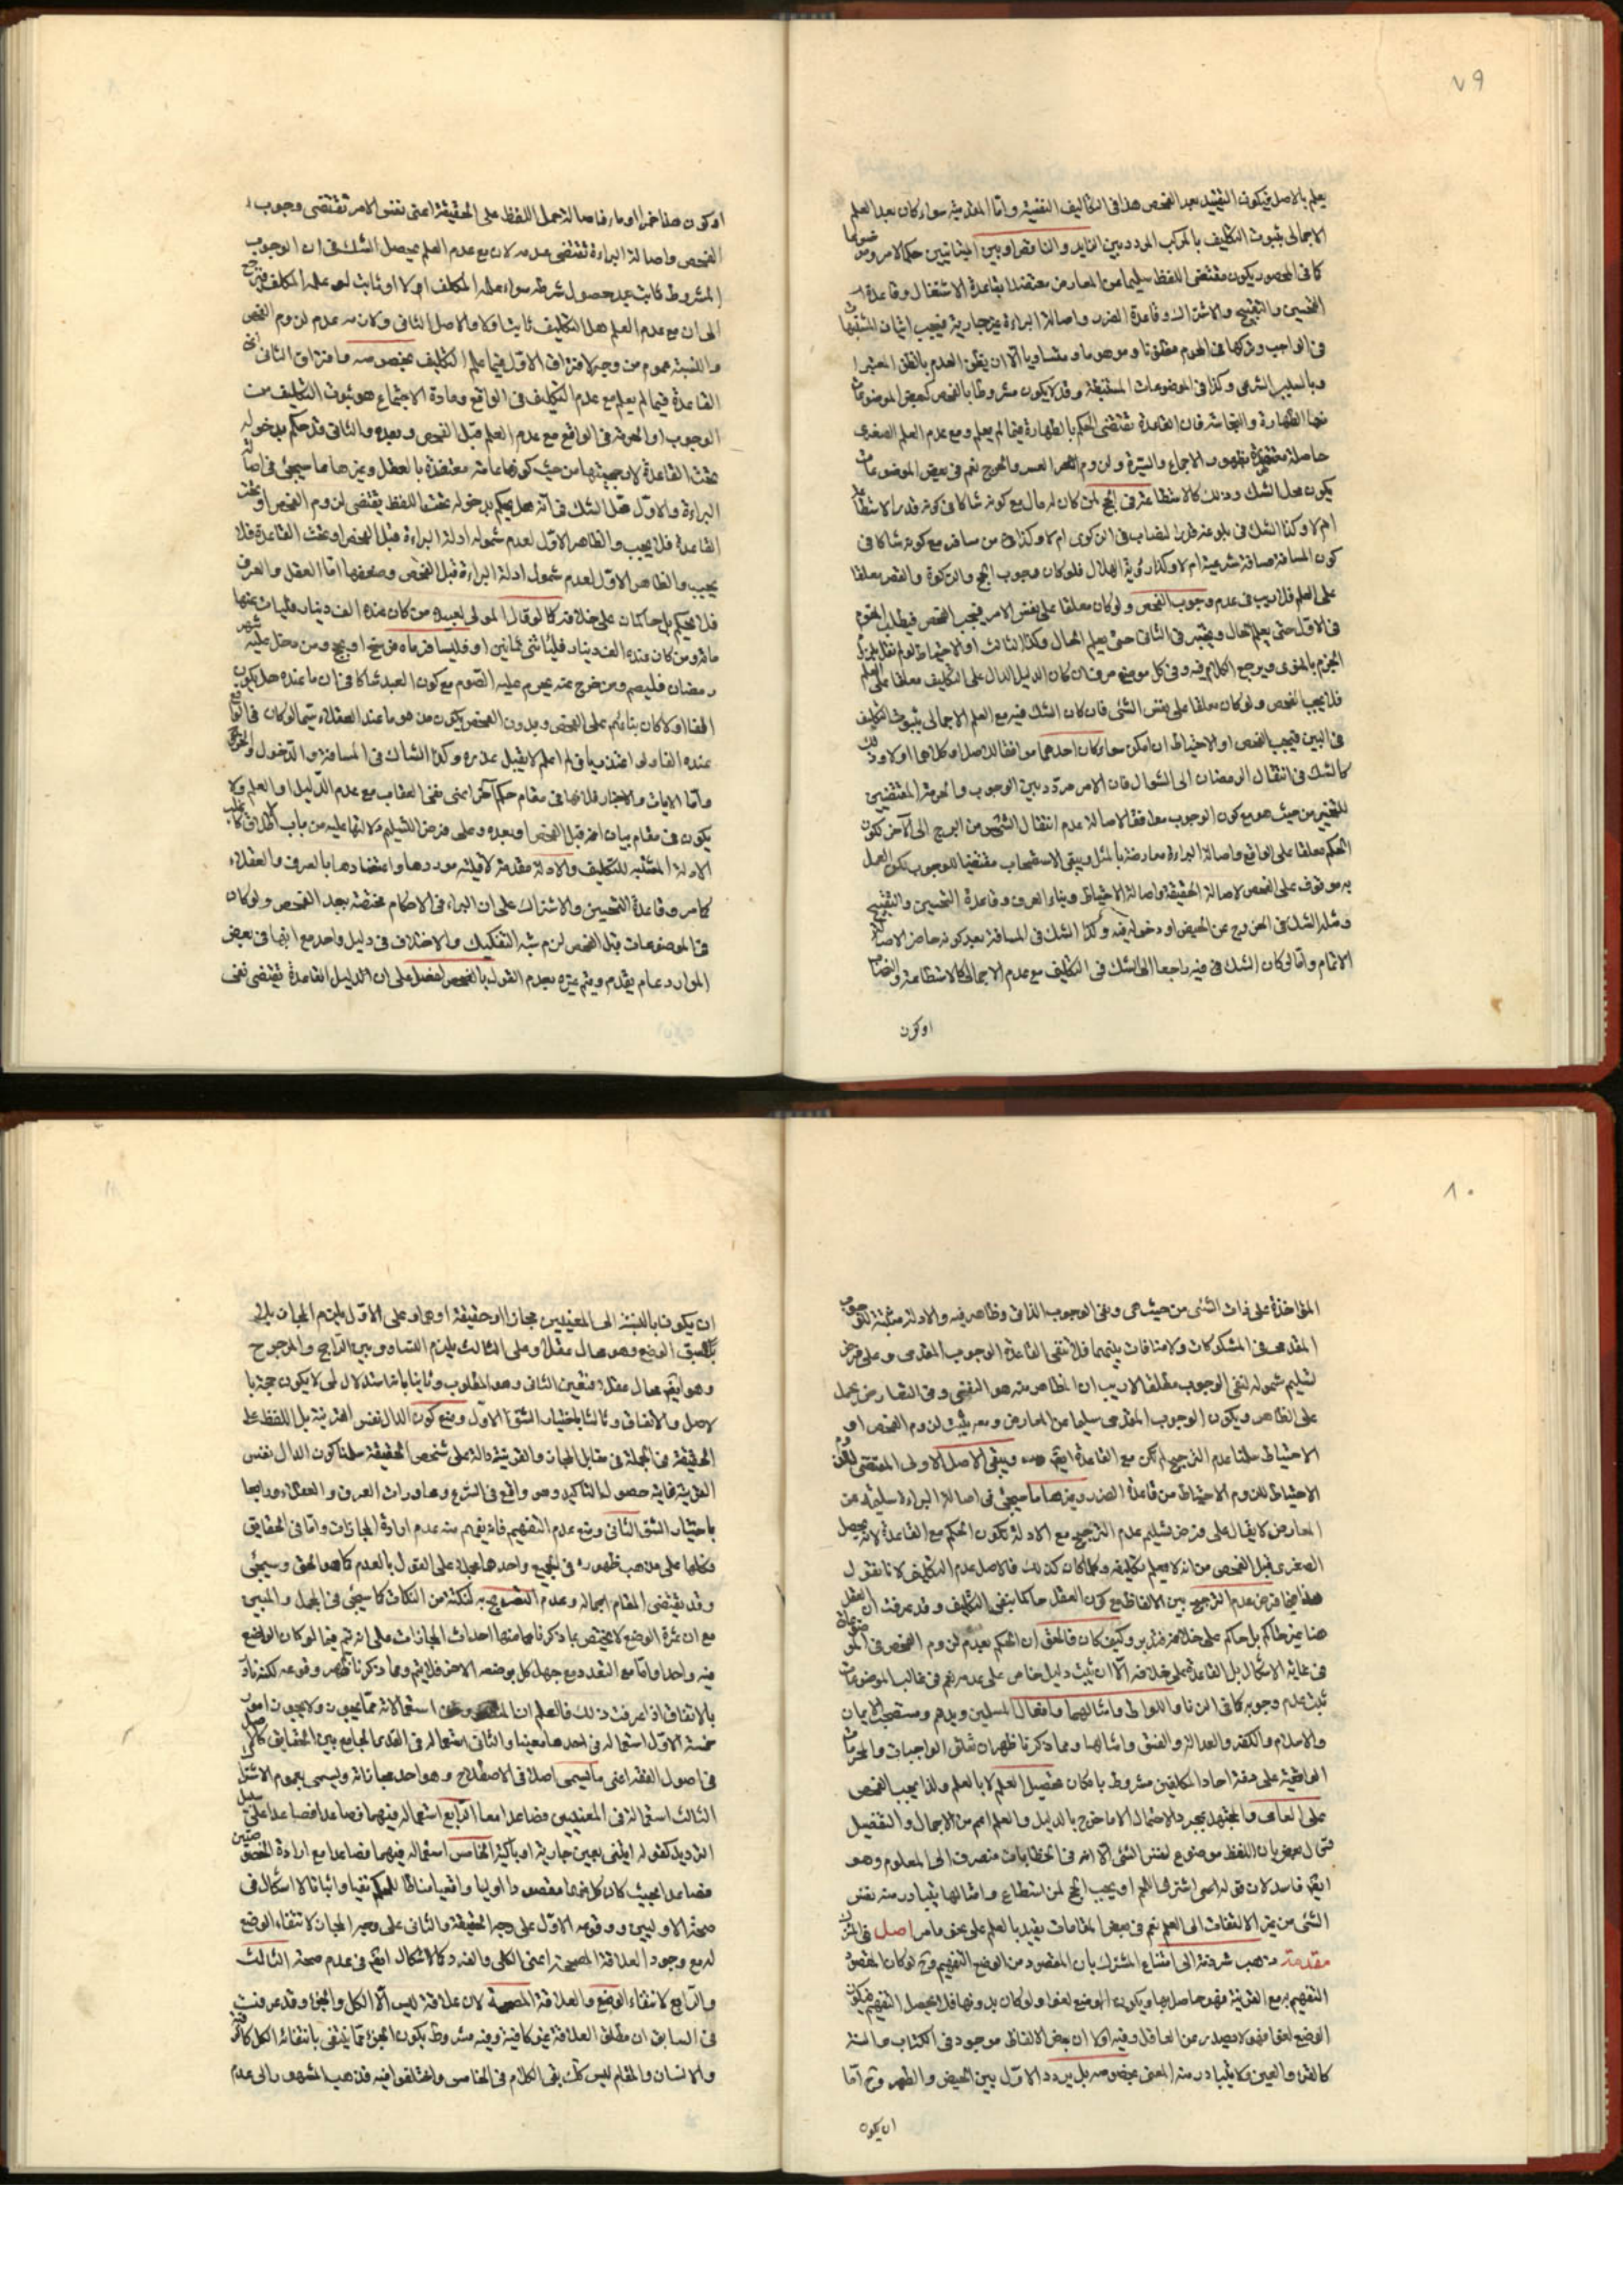 ٧٩
يعلم بالاصل فيكون التقييد بعد الفحص هذا فى التكاليف النفسية واما المقدمية سواء كان بعد العلم
الاجمالى بثبوت التكليف بالمركب المردد بين الزايد والناقص او بين المتباينين حكما لامر وموضوعا
كما فى المحصور يكون مقتضى اللفظ سليما من المعارض معتضدا بقاعدة الاشتغال وقاعدة
التحسين والتقبيح والاشتراك وقاعدة الضرر واصالة البراءة غير جارية فيجب اتيان المشتبهات
فى الواجب وتركها فى الحرام مظنونا وموهوما ومتساويا الا ان يظن العدم بالظن المعتبر
وبالسبب الشرعى وكذا فى الموضوعات المستنبطة وقد لا يكون مشروطا بالفحص كبعض الموضوعات
الطهارة والنجاسة فان القاعدة تقتضى الحكم بالطهارة فيما لم يعلم ومع عدم العلم الصغرى
حاصلة معتضدة بظهور الاجماع والسيرة ولزوم العسر والحرج نعم فى بعض الموضوعات
يكون محل الشك وذلك كالاستطاعة فى الحج لمن كان له مال مع كونه شاكا فى كونه قدر الاستطاعة
ام لا وكذا الشك فى بلوغه قدر النصاب فى الزكوة ام لا وكذا من سافر مع كونه شاكا فى
كون المسافة مسافة شرعية ام لا وكذا رؤية الهلال فلو كان وجوب الحج والزكوة والقصر معلقا
على العلم فلا ريب فى عدم وجوب الفحص ولو كان معلقا على نفس الامر فيجب الفحص فيطلب
فى الاول حتى يعلم الحال ويختبر فى الثانى حتى يعلم الحال وكذا الثالث او الاحتياط
الجزم بالفتوى ويرجع الكلام فيه وفى كل موضع مر فان كان الدليل الدال على التكليف معلقا على العلم
فلا يجب الفحص ولو كان معلقا على نفس الشئ فان كان الشك فيه مع العلم الاجمالى بثبوت التكليف
فى البين فيجب الفحص او الاحتياط ان امكن سواء كان احدهما موافقا للاصل او كلاهما او لا وذلك
كالشك فى انتقال الرمضان الى الشوال فان الامر مردد بين الوجوب والحرمة المقتضيين
للتخيير من حيث هو مع كون الوجوب معا فقا لاصالة عدم انتقال الشمس من البرج الى الآخر لكون
الحكم معلقا على الواقع واصالة البراءة معارضة بالمثل ويبقى الاستصحاب مقتضيا للوجوب لكن العمل
به موقوف على الفحص لاصالة الحقيقة واصالة الاحتياط وبناء العرف وقاعدة التحسين والتقبيح
ومثله الشك فى الخروج عن الحيض او دخوله فيه وكذا الشك فى المسافة بعد كونه حاضرا لاصالة
الاتمام واما لو كان الشك فى فيه راجعا الى الشك فى التكليف مع عدم الاجمالى كالاستطاعة والنصاب
او كون
او كون هذا خمرا او ماء فاصالة حمل اللفظ على الحقيقة اعنى نفس الامر تقتضى وجوب
الفحص واصالة البراءة تقتضى عدمه لان مع عدم العلم يحصل الشك فى ان الوجوب
المشروط ثابت عند حصول شرطه سواء علمه المكلف ام لا او ثابت لو علمه المكلف فيرجع
الى ان مع عدم العلم هل التكليف ثابت اولا والاصل الثانى ولازمه عدم لزوم الفحص
والنسبة عموم من وجه لافتراق الاول فيما علم التكليف بخصوصه وافتراق الثانى اى
القاعدة فيما لم يعلم مع عدم التكليف فى الواقع ومادة الاجتماع هو ثبوت التكليف من
الوجوب او الحرمة فى الواقع مع عدم العلم قبل الفحص وبعده والثانى قد حكم بدخوله
تحت القاعدة لارجحيتها من حيث كونها عامة معتضدة بالعقل وغيرها مما سيجئ فى اصالة
البراءة والاول محل الشك فى انه هل يحكم بدخوله تحت اللفظ يقتضى لزوم الفحص او تحت
القاعدة فلا يجب والظاهر الاول لعدم شموله ادلة البراءة قبل الفحص او تحت القاعدة فلا
يجب والظاهر الاول لعدم شمول ادلة البراءة قبل الفحص وضعفها اما العقل والعرف
فلا يحكم بل حاكمان على خلافه كما لو قال المولى لعبيده من كان عنده الف دينار فليات منها
مائة ومن كان عنده الف دينار فليأتنى ثمانين او فليسافر ماه فرسخ او يحج ومن دخل عليه شهر
رمضان فليصم ومن خرج عنه يحرم عليه الصوم مع كون العبد شاكا فى ان ما عنده هل يكون
الفا او لا كان بنائهم على الفحص وبدون الفحص يكون مذموما عند العقلاء سيما لو كان فى الواقع
عنده الفا ولو اعتذر بانى لم اعلم لا يقبل عذره وكذا الشاك فى المسافة والدخول والخروج
واما الايات والاخبار فلانها فى مقام حكم آخر اعنى نفى العقاب مع عدم الدليل او العلم ولا
يكون فى مقام بيان انه قبل الفحص او بعده وعلى فرض التسليم دلالتها عليه من باب الاطلاق
الادلة المثبتة للتكليف والادلة مقدمة لاقلية موردها واعتضادها بالعرف والعقلاء
كما مر وقاعدة التحسين والاشتراك على ان البراءة فى الاحكام مختصة بعد الفحص ولو كان
فى الموضوعات قبل الفحص لزم شبه التفكيك والاختلاف فى دليل واحد مع انها فى بعض
الموارد عام يقدم ويتم غيره بعدم القول بالفصل على ان الدليل القاعدة يقتضى نفى
٨٠
المؤاخذة على ذات الشئ من حيث هى ونفى الوجوب الذاتى وظاهر فيه والادلة مثبتة للوجوب
المقدمى فى المشكوكات ولا منافات بينهما فلا تنفى القاعدة الوجوب المقدمى وعلى فرض
تسليم شموله لنفى الوجوب مطلقا لا ريب ان الظاهر منه هو النفسى وفى التعارض يحمل
على الظاهر ويكون الوجوب المقدمى سليما عن المعارض ومعه يثبت لزوم الفحص او
الاحتياط سلمنا عدم الترجيح لم يكن مع القاعدة ايضا ويبقى الاصل الاولى المقتضى للزوم
الاحتياط للزوم الاحتياط من قاعدة الضرر وغيرها مما سيجئ فى اصالة البراءة سليمة عن
المعارض لا يقال على فرض تسليم عدم الترجيح مع الادلة يكون الحكم مع القاعدة لانه يحصل
الصغرى قبل الفحص من انه لا يعلم تكليفه وكلما كان كذلك فالاصل عدم التكليف لانا نقول
هذا فيما فرض عدم الترجيح بين الالفاظ مع كون العقل حاكما بنفى التكليف وقد عرفت ان العقل
هنا غير حاكم بل حاكم على خلافه فتدبر وكيف كان فالحق ان الحكم بعدم لزوم الفحص فى الموضوعات
فى غاية الاشكال بل القاعدة على خلافه الا ان يثبت دليل خاص على عدمه نعم فى غالب الموضوعات
ثبت عدم وجوبه كما فى الزنا واللواط وامثالهما وافعال المسلمين ويدهم ومستصحب الايمان
والاسلام والكفر والعدالة والفسق وامثالها ومما ذكرنا ظهر ان تعلق الواجبات والمحرمات
الواقعية على ذمة احاد المكلفين مشروط بامكان تحصيل العلم لا بالعلم ولذا يجب الفحص
على العامى والمجتهد بمجرد الاحتمال الا ما خرج بالدليل والعلم اعم من الاجمال والتفصيل
قال بعض بان اللفظ موضوع لنفس الشئ الا انه فى الخطابات منصرف الى المعلوم وهو
ايضا فاسد لان قوله اسى اشتر لنا اللحم او يجب الحج لمن استطاع وامثالها يتبادر منه نفس
الشئ من غير الالتفات الى العلم نعم فى بعض المقامات يفيد بالعلم على نحو ما مر اصل فى المشترك
مقدمة ذهب شرذمة الى امتناع المشترك بان المقصود من الوضع التفهيم وح لو كان المقصود
التفهيم مع القرينة فهو حاصل بها ويكون الوضع لغوا ولو كان بدونها فلا يحصل التفهيم فيكون
الوضع لغوا فهو لا يصدر من العاقل وفيه اولا ان بعض الالفاظ موجود فى الكتاب والسنة
كالقرء والعين ولا يتبادر منه المعنى بخصوصه بل يردد الاول بين الحيض والطهر وح اما
ان يكون
ان يكون بالنسبة الى المعنيين مجازا او حقيقة او هما وعلى الاول يلزم المجاز
بلا سبق الوضع وهو محال عقلا وعلى الثالث يلزم التساوى بين الراجح والمرجوح
وهو ايضا محال عقلا فتعين الثانى وهو المطلوب وثانيا بانه استدلال لمى لا يكون حجة
لاصل والاتفاق وثالثا باختيار الشق الاول ومنع كون الدال نفس القرينة بل اللفظ على
الحقيقة فى الجملة فى مقابل المجاز والقرينة دالة على شخص الحقيقة سلمنا كون الدال نفس
القرينة غايته حصول التاكيد وهو واقع فى الشرع ومحاورات العرف والعقلاء ورابعا
باختيار الشق الثانى ومنع عدم التفهيم فانه يفهم منه عدم ارادة المجازات واما فى الحقايق
فكلها على مذهب ظهوره فى الجميع واحدها مجملا على القول بالعدم كما هو الحق وسيجئ
وقد يقتضى المقام اجماله وعدم التصريح به لنكتة من النكات كما سيجئ فى المجمل والمبين
مع ان ثمرة الوضع لا يختص بما ذكرنا بل منها احداث المجازات على انه تم فيما لو كان الواضع
فيه واحدا واما مع التعدد مع جهل كل بوضعه الاخر فلا يتم ومما ذكرنا ظهر وقوعه لكنه نادر
بالاتفاق اذا عرفت ذلك فاعلم ان المشترك استعمالاته مما يجوز ولا يجوز امور
خمسة الاول استعماله فى احدهما معينا والثانى استعماله فى القدر الجامع بين الحقايق كالاصل
فى اصول الفقه اعنى ما يسمى اصلا فى الاصطلاح وهو احد مجازاته ويسمى بعموم الاشتراك
الثالث استعماله فى المعنيين فصاعدا معا الرابع استعماله فيهما فصاعدا فصاعدا على سبيل
الترديد كقوله ايتنى بعين جارية او باكية الخامس استعماله فيهما فصاعدا مع ارادة الخصوصيتين
فصاعدا بحيث كان كل منهما مقصودا اوليا واقعيا مناطا للحكم نفيا واثباتا لا اشكال فى
صحة الاوليين ووقوعه الاول على وجه الحقيقة والثانى على وجه المجاز لانتفاء الوضع
له مع وجود العلاقة المصححة اعنى الكلى والفرد كما لا اشكال ايضا فى عدم صحة الثالث
والرابع لانتفاء الوضع والعلاقة المصححة لان علاقة ليس الا الكل والجزء وقد عرفت
فى السابق ان مطلق العلاقة غير كافية وفيه مشروط بكون الجزء مما ينتفى بانتفائه الكل كالرقبة
والانسان والمقام ليس كذلك بقى الكلام فى الخامس واختلفوا فيه فذهب المشهور الى عدم